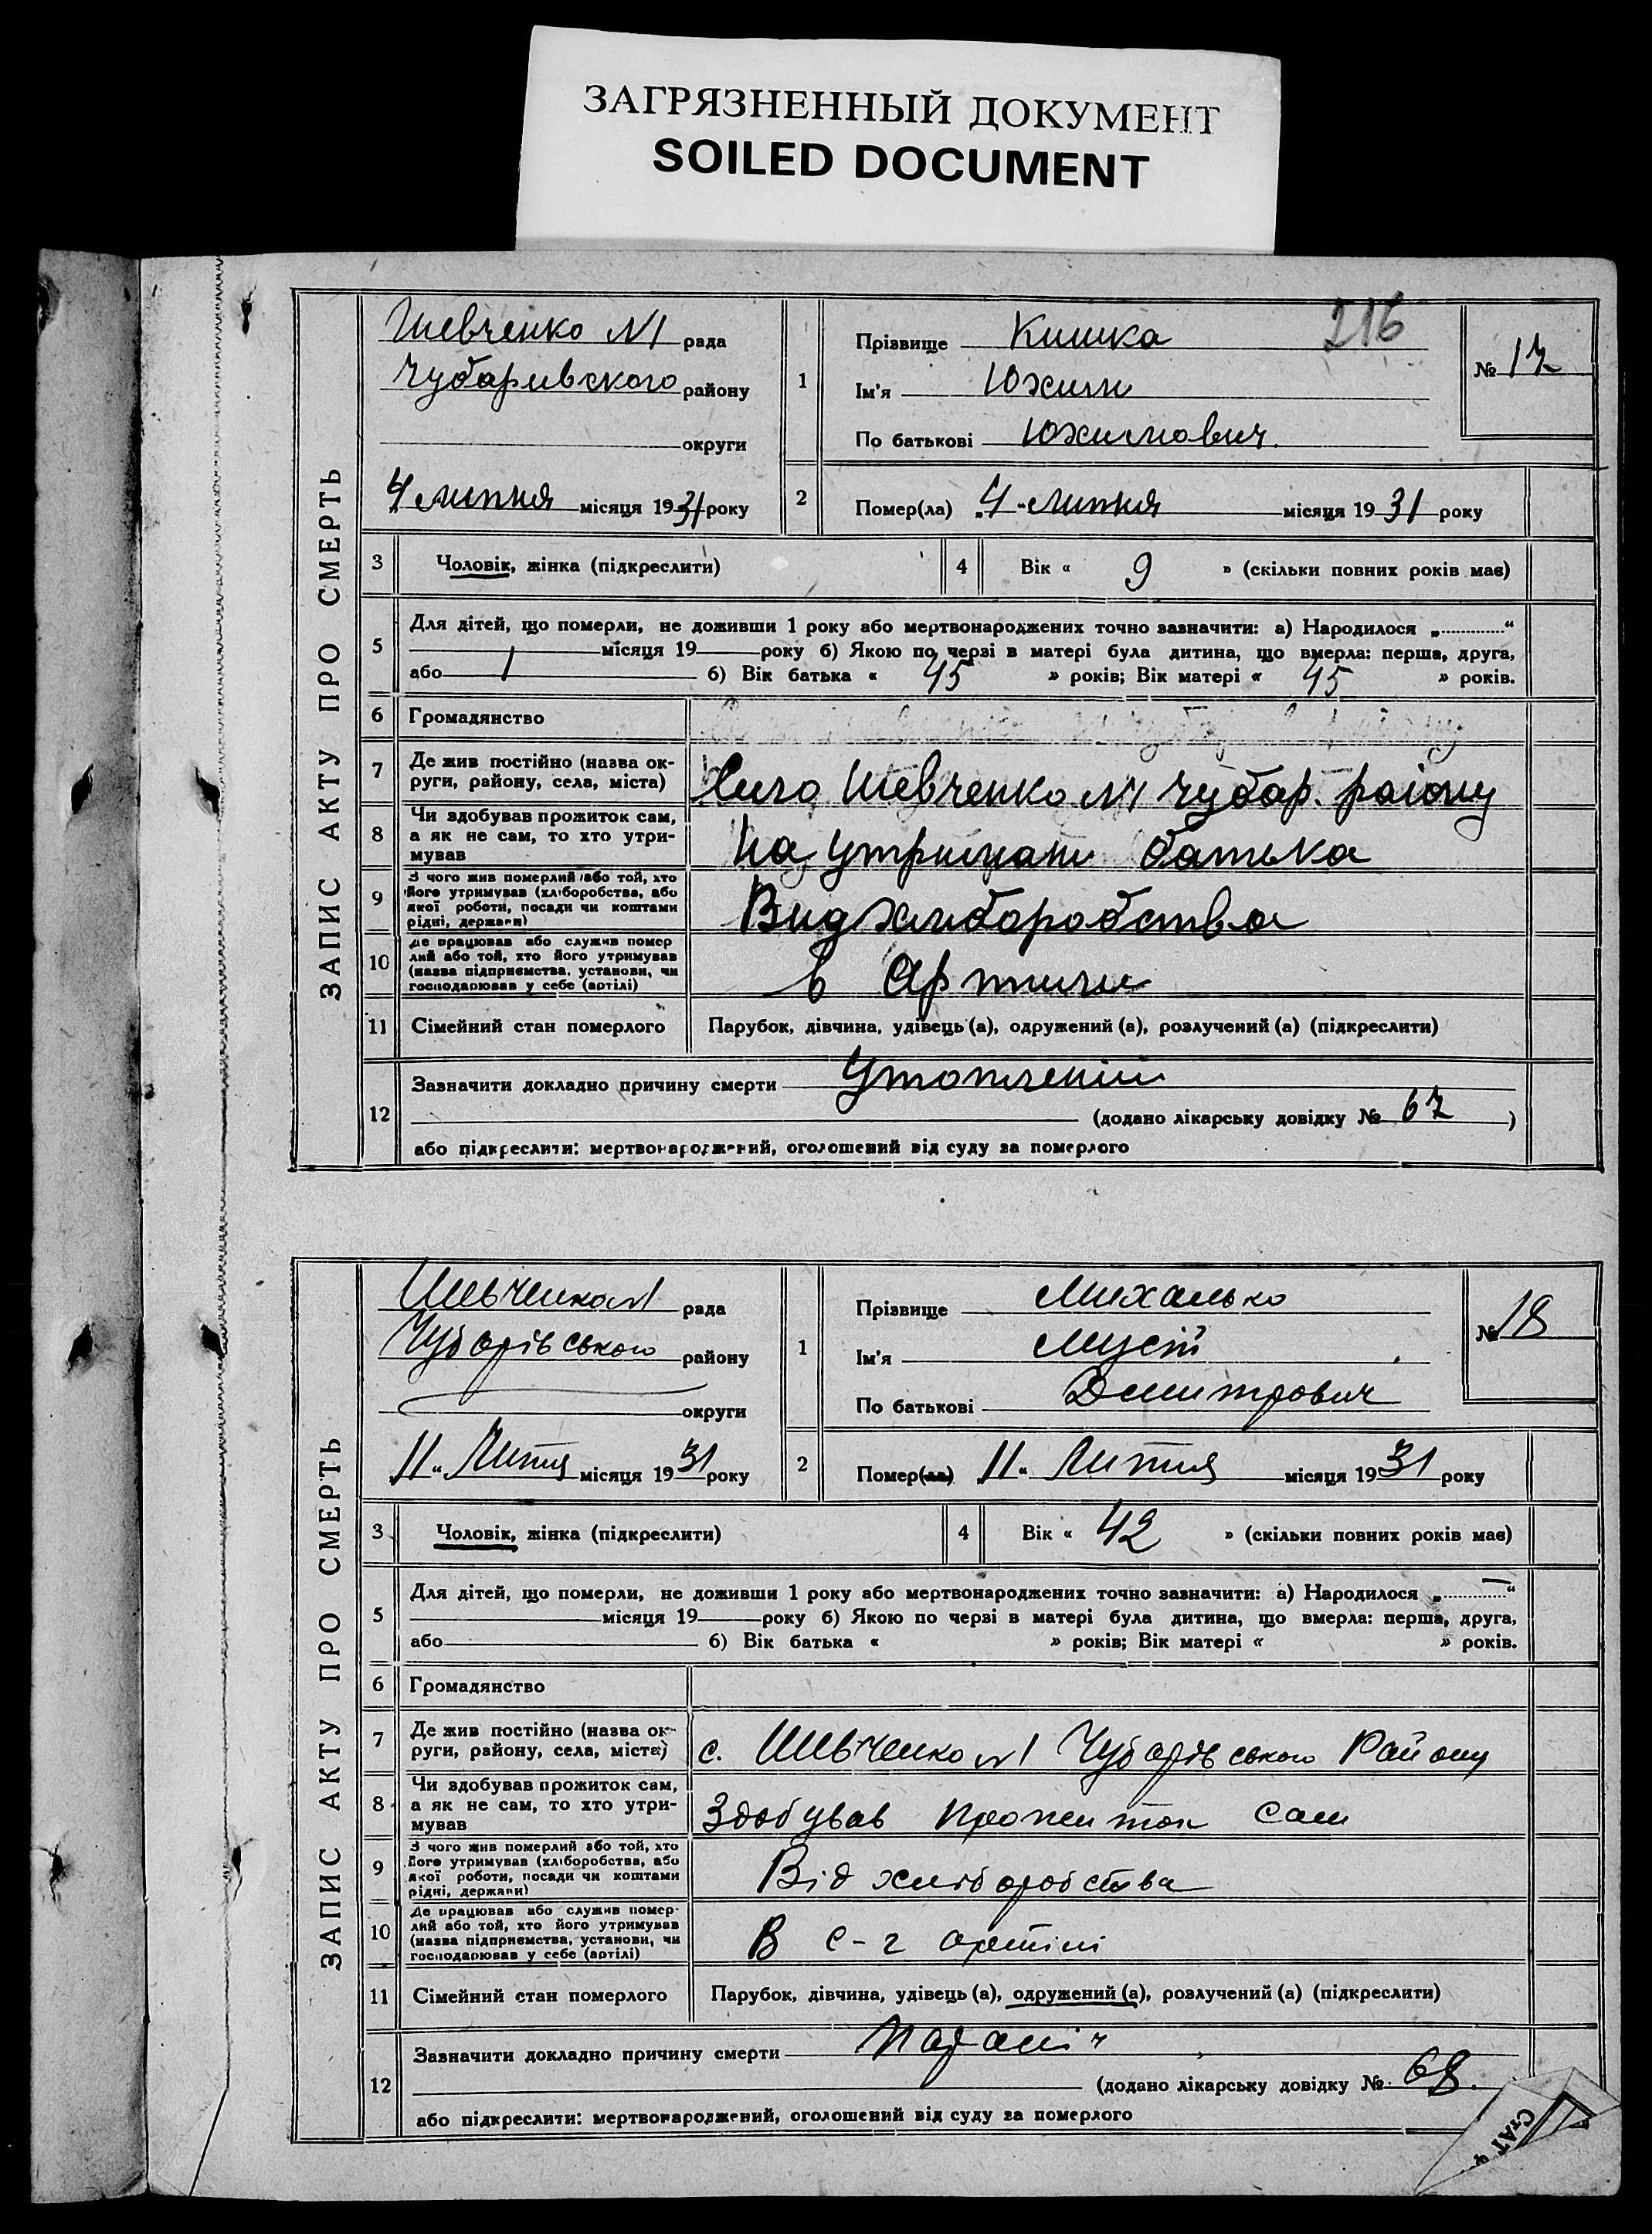 ЗАГРЯЗНЕННЫЙ ДОКУМЕНТ
SOILED DOCUMENT
216
ЗАПИС АКТУ ПРО СМЕРТЬ
Шевченко №1 рада
Чубаривского району
округи
4 липня місяця 1931 року
1
Прізвище Кишка
Ім'я Юхим
По батькові Юхимович
№ 17
2 Помер(ла) „4“ липня місяця 1931 року
3 Чоловік, жінка (підкреслити)
4 Вік « 9 » (скільки повних років має)
5 Для дітей, що померли, не доживши 1 року або мертвонароджених точно зазначити: а) Народилося „............“
місяця 19 року б) Якою по черзі в матері була дитина, що вмерла: перша, друга,
або б) Вік батька « 45 » років; Вік матері « 45 » років.
6 Громадянство
7 Де жив постійно (назва ок-
руги, району, села, міста)
Село Шевченко №1 Чубар. району
8 Чи здобував прожиток сам,
а як не сам, то хто утри-
мував
На утримани батька
9 З чого жив померлий або той, хто
його утримував (хліборобства, або
якої роботи, посади чи коштами
рідні, держави)
Вид хлиборобства
10 Де працював або служив помер
лий або той, хто його утримував
(назва підприємства, установи, чи
господарював у себе (артілі)
в Артили
11 Сімейний стан померлого Парубок, дівчина, удівець (а), одружений (а), розлучений (а) (підкреслити)
12 Зазначити докладно причину смерти Утоплений
(додано лікарську довідку № 67 )
або підкреслити: мертвонароджений, оголошений від суду за померлого
ЗАПИС АКТУ ПРО СМЕРТЬ
Шевченко №1 рада
Чубарівського району
округи
11 „ Липня місяця 1931 року
1
Прізвище Михалько
Ім'я Мусій
По батькові Дмитрович
№ 18
2 Помер(ла) 11 „ Липня місяця 1931 року
3 Чоловік, жінка (підкреслити)
4 Вік « 42 » (скільки повних років має)
5 Для дітей, що померли, не доживши 1 року або мертвонароджених точно зазначити: а) Народилося „............“
місяця 19 року б) Якою по черзі в матері була дитина, що вмерла: перша, друга,
або б) Вік батька « » років; Вік матері « » років.
6 Громадянство
7 Де жив постійно (назва ок-
руги, району, села, міста)
с. Шевченко №1 Чубарівського Району
8 Чи здобував прожиток сам,
а як не сам, то хто утри-
мував
Здобував прожиток сам
9 З чого жив померлий або той, хто
його утримував (хліборобства, або
якої роботи, посади чи коштами
рідні, держави)
Від хліборобства
10 Де працював або служив помер-
лий або той, хто його утримував
(назва підприємства, установи, чи
господарював у себе (артілі)
В с-г артілі
11 Сімейний стан померлого Парубок, дівчина, удівець (а), одружений (а), розлучений (а) (підкреслити)
12 Зазначити докладно причину смерти
(додано лікарську довідку № 68.
або підкреслити: мертвонароджений, оголошений від суду за померлого